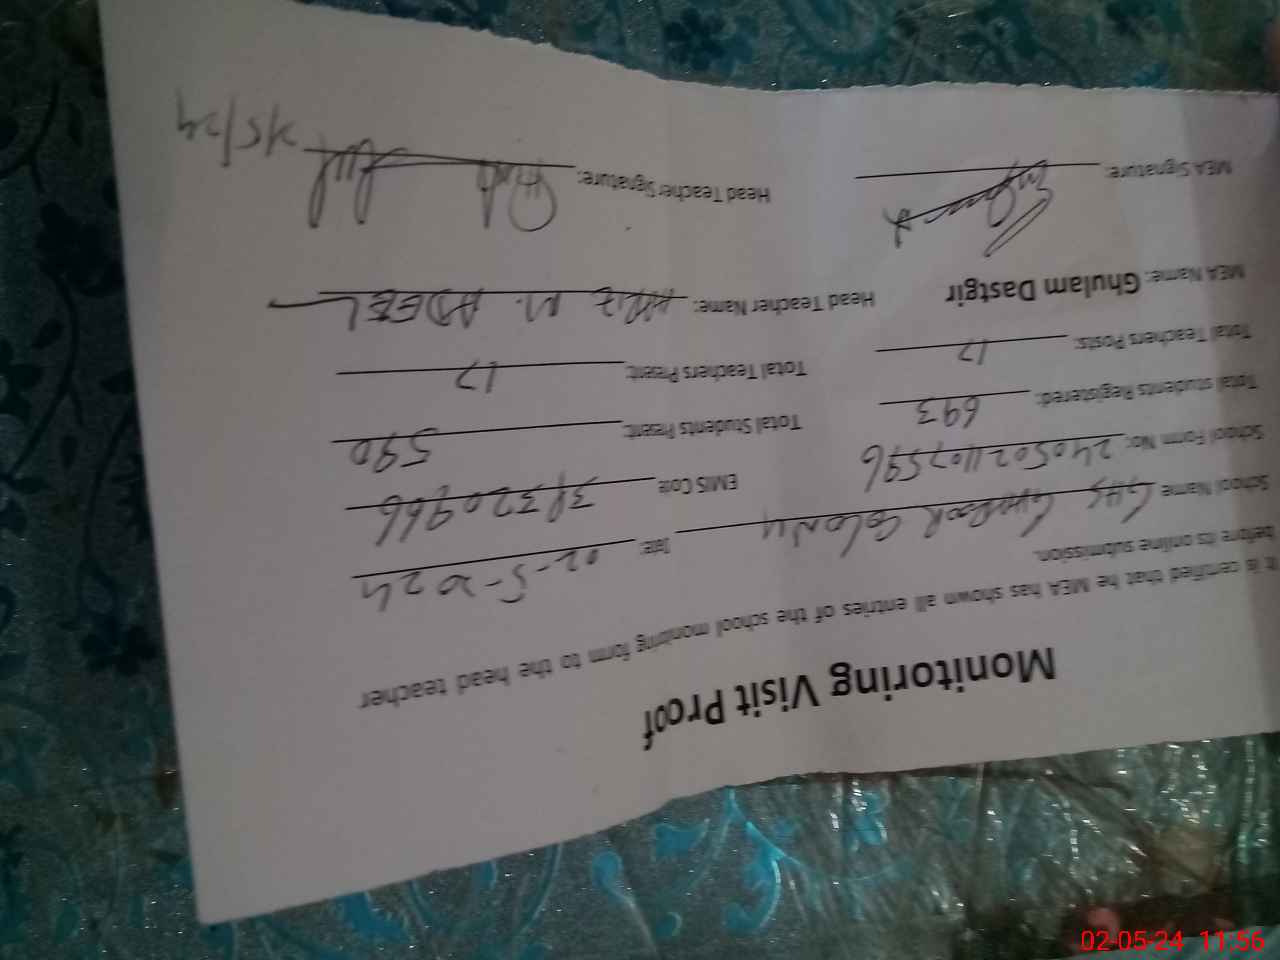 Monitoring Visit Proof
It is certified that he MEA has shown all entries of the school monitoring form to the head teacher
before its online submission.
School Name GHS GHAFOOR COLONY Date: 02-5-2024
School Form No: 2405021107596 EMIS Code
Total students Registered: 693 Total Students Present: 590
Total Teachers Posts: 17 Total Teachers Present: 17
MEA Name: Ghulam Dastgir Head Teacher Name: HAFIZ M. ADEEL
MEA Signature: Head Teacher Signature: 2/5/24
02-05-24 11:56